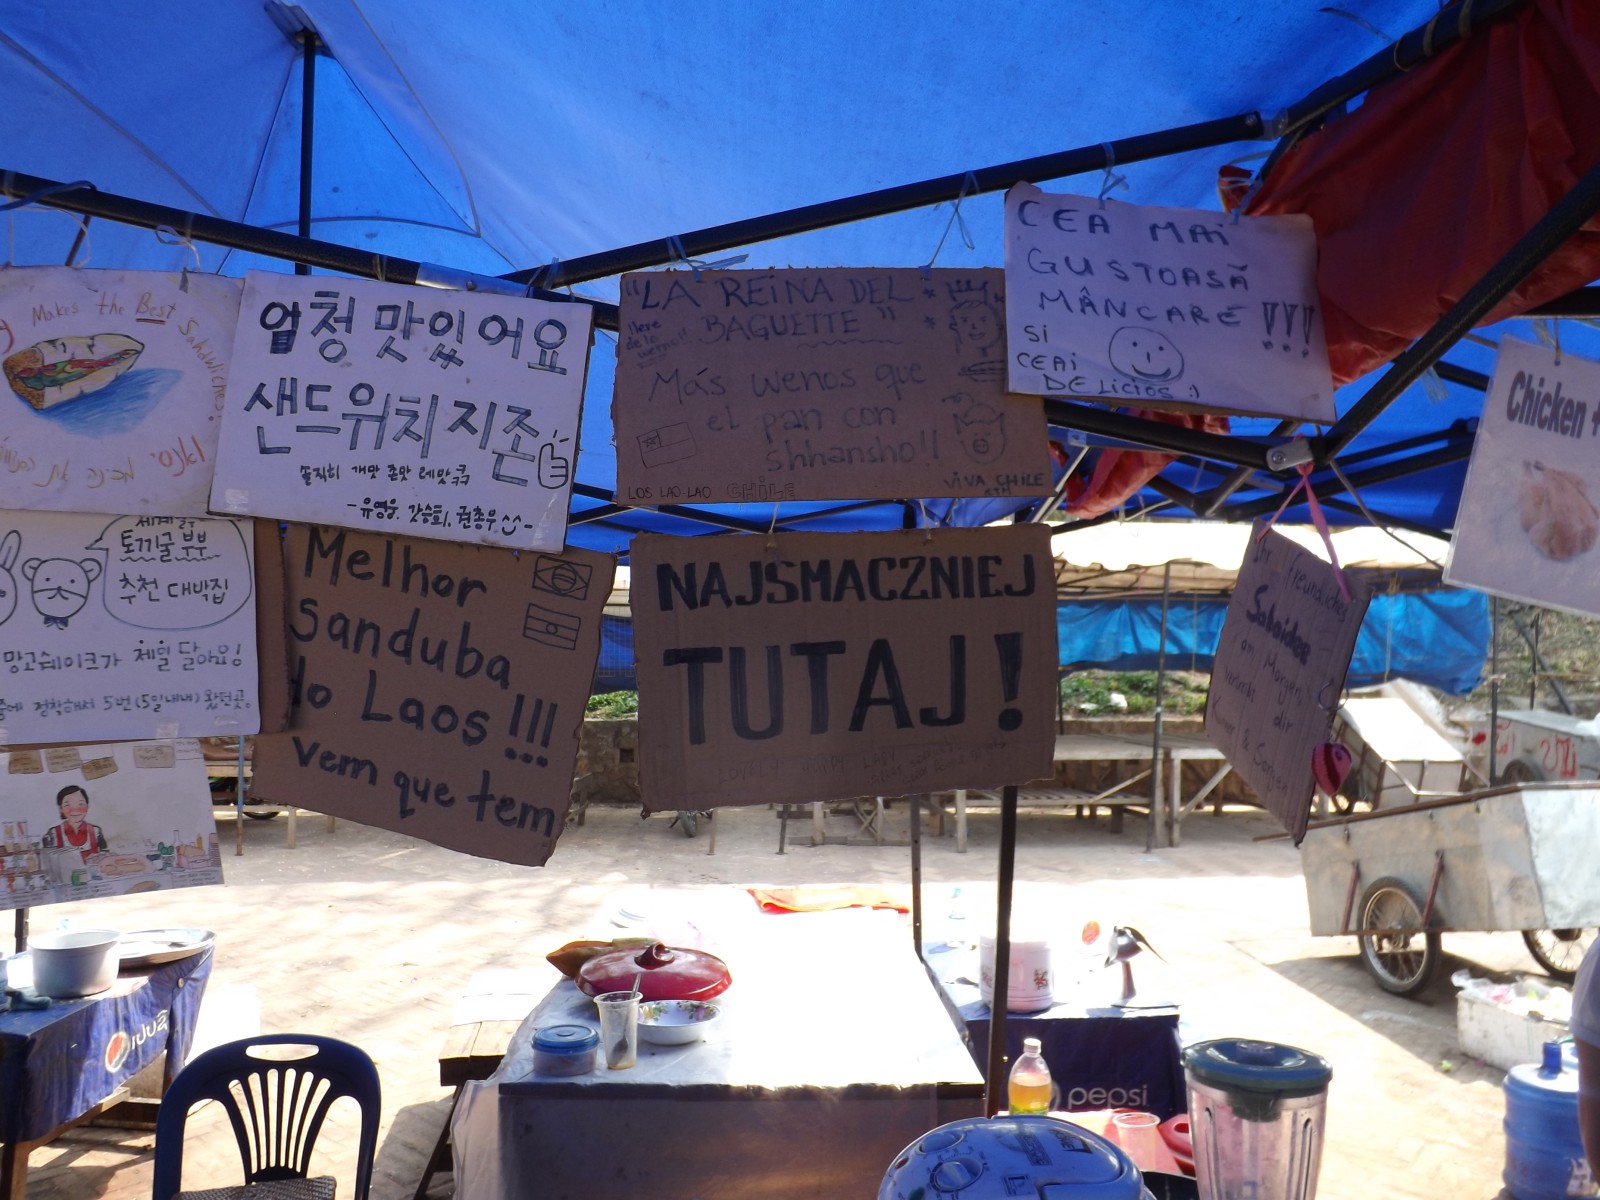 Makes the Best Sandwiches!
엄청 맛있어요
샌드위치 지존
솔직히 개맛 존맛 레맛 ㅋㅋ
-유영웅. 강승희. 권총우 ^^-
"LA REINA DEL
BAGUETTE"
Más wenos que
el pan con
shhansho!!
LOS LAO-LAO CHILE
VIVA CHILE
CEA MAI
GUSTOASĂ
MÂNCARE !!!
SI
CEAI
DELICIOS :)
Chicken
토끼굴 부부
추천 대박집
망고쉐이크가 제일 달아요잉
정착해서 5번(5일내내) 왔던곳.
Melhor
Sanduba
do Laos!!!
Vem que tem
NAJSMACZNIEJ
TUTAJ!
LOVELY HAPPY LADY
Ihr freundliches
Sabaidee
am Morgen,
vertreibt dir
Kummer & Sorgen
pepsi